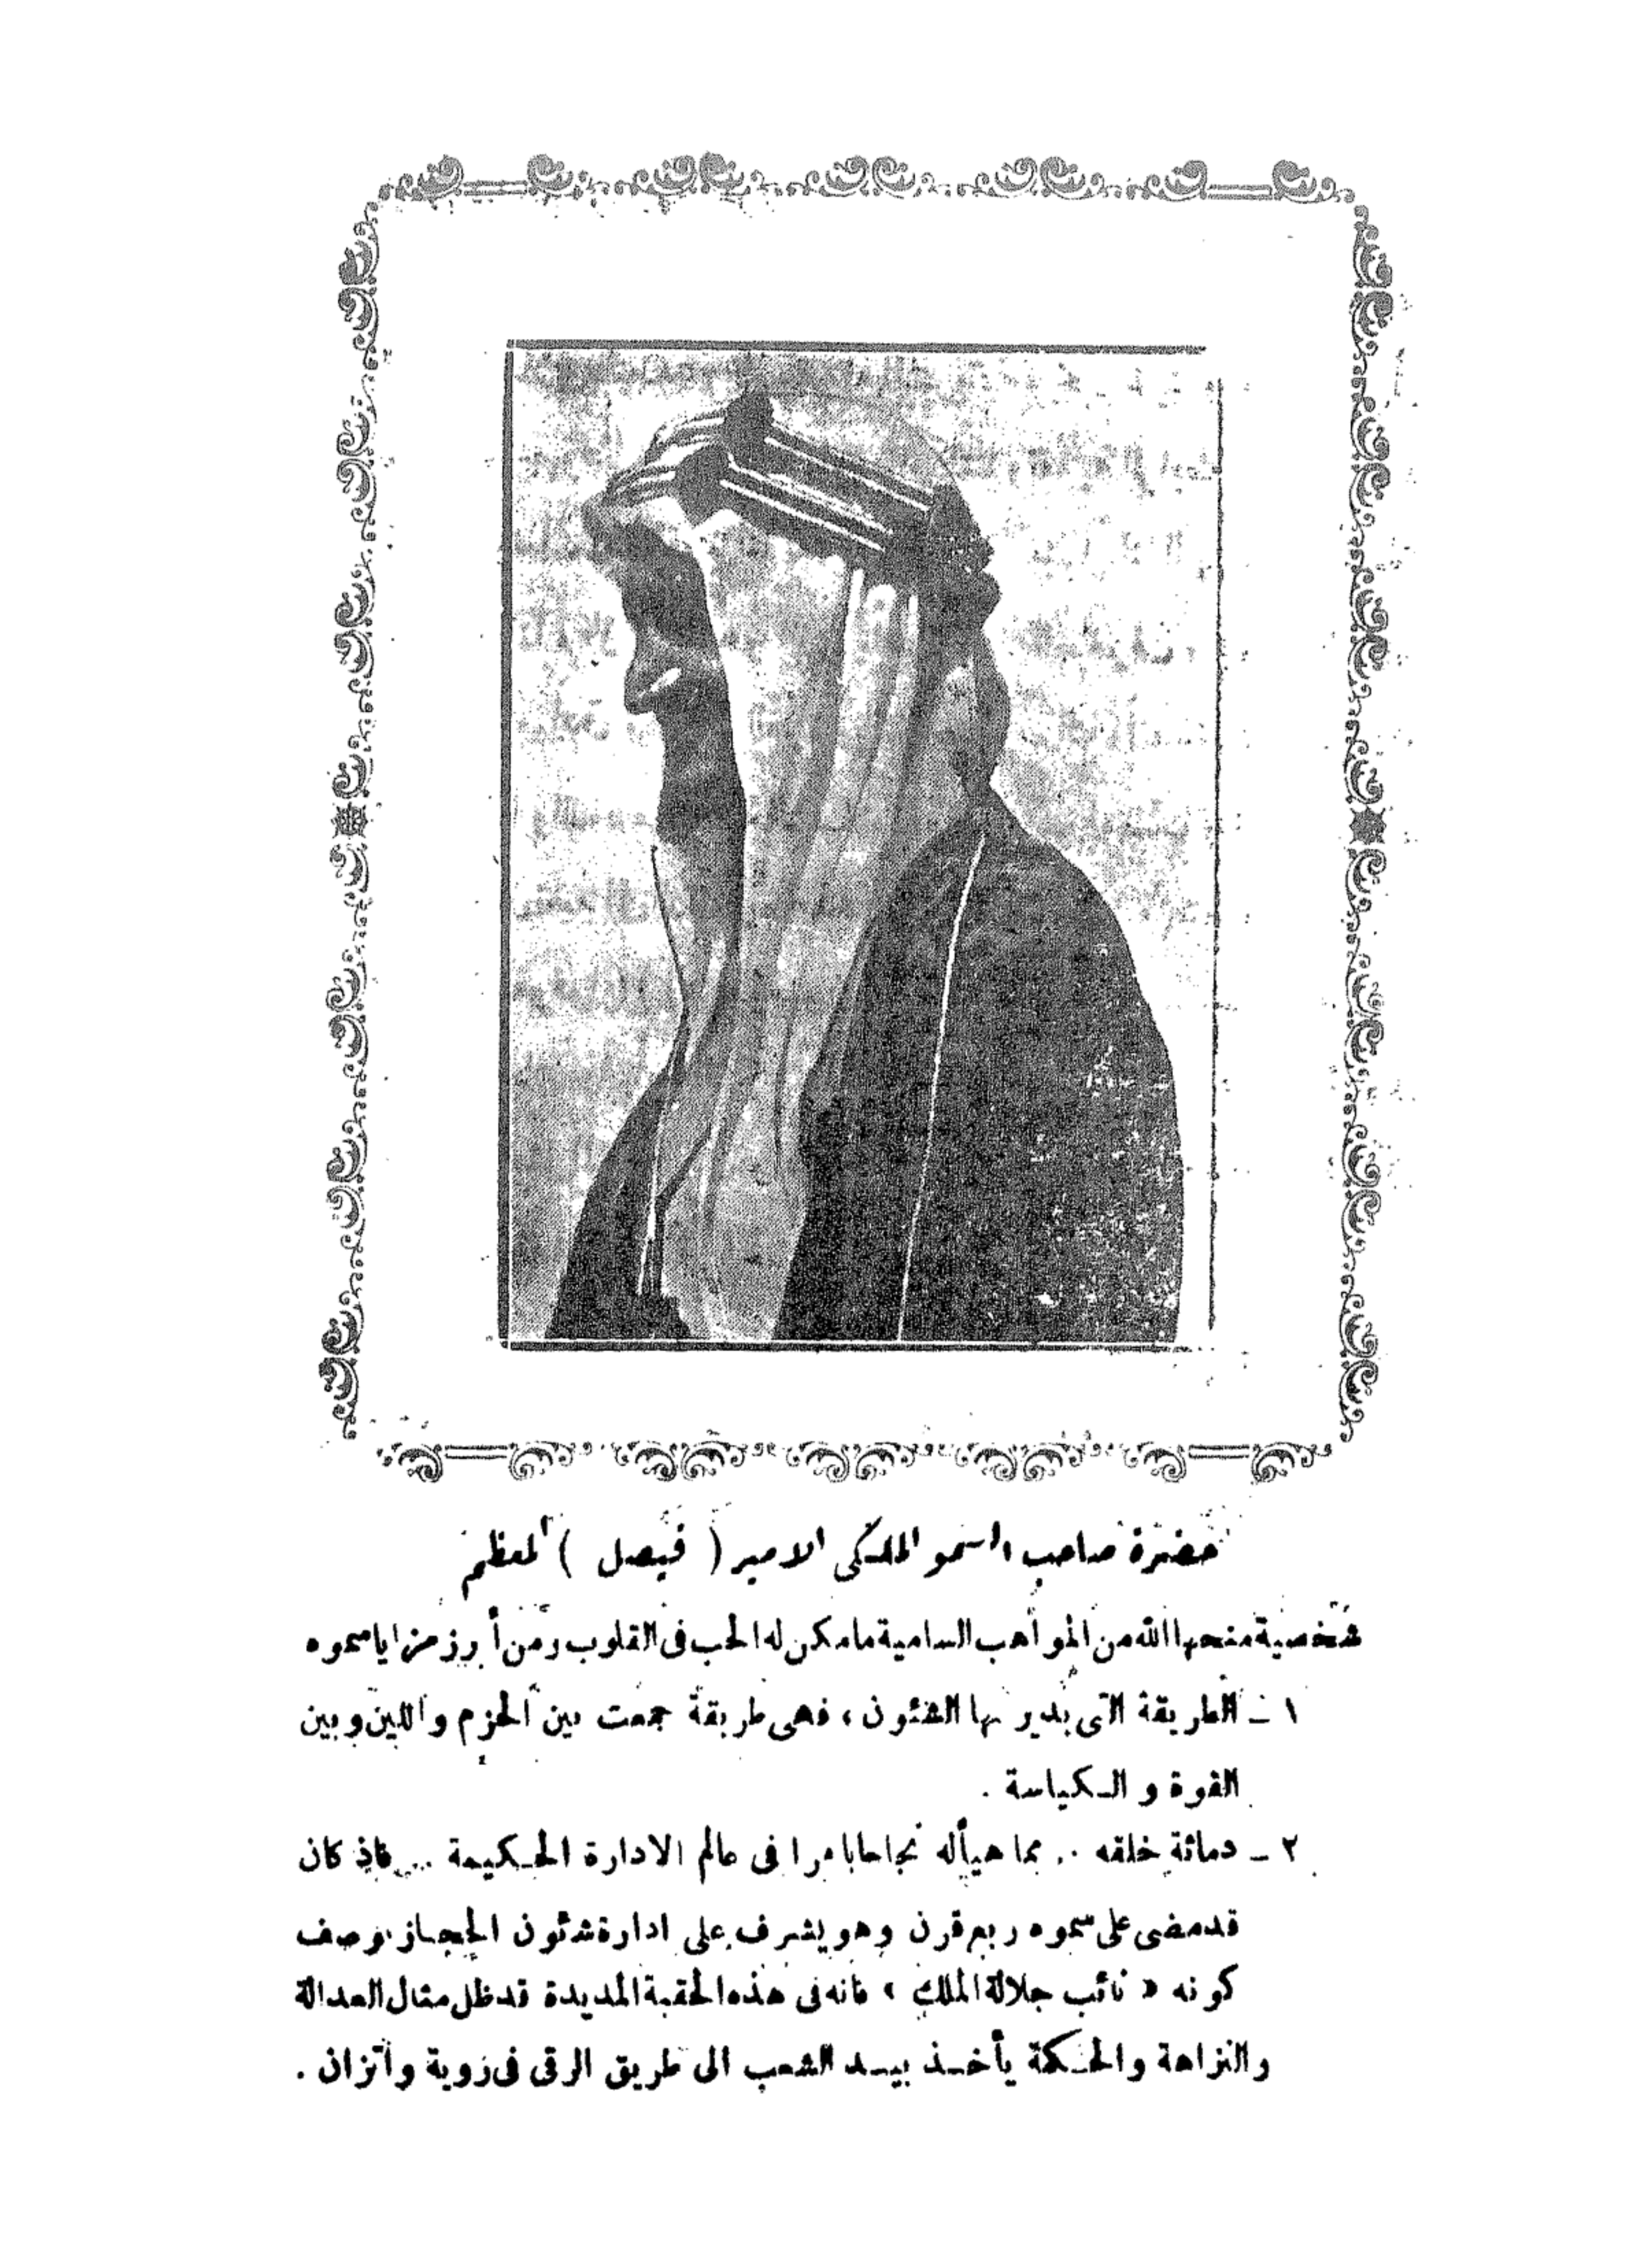 حضرة صاحب السمو الملكى الامير ( فيصل ) المعظم
شخصية منحها الله من المواهب السامية ما مكن له الحب فى القلوب ومن أبرز مزايا سموه
١ ـ الطريقة التى يدير بها الشئون ، فهى طريقة جمعت بين الحزم واللين وبين
القوة والكياسة .
٢ ـ دماثة خلقه .. مما هيأ له نجاحا باهرا فى عالم الادارة الحكيمة ... فاذ كان
قد مضى على سموه ربع قرن وهو يشرف على ادارة شئون الحجاز بوصف
كونه « نائب جلالة الملك » فانه فى هذه الحقبة المديدة قد ظل مثال العدالة
والنزاهة والحكمة يأخذ بيد الشعب الى طريق الرقى فى روية واتزان .